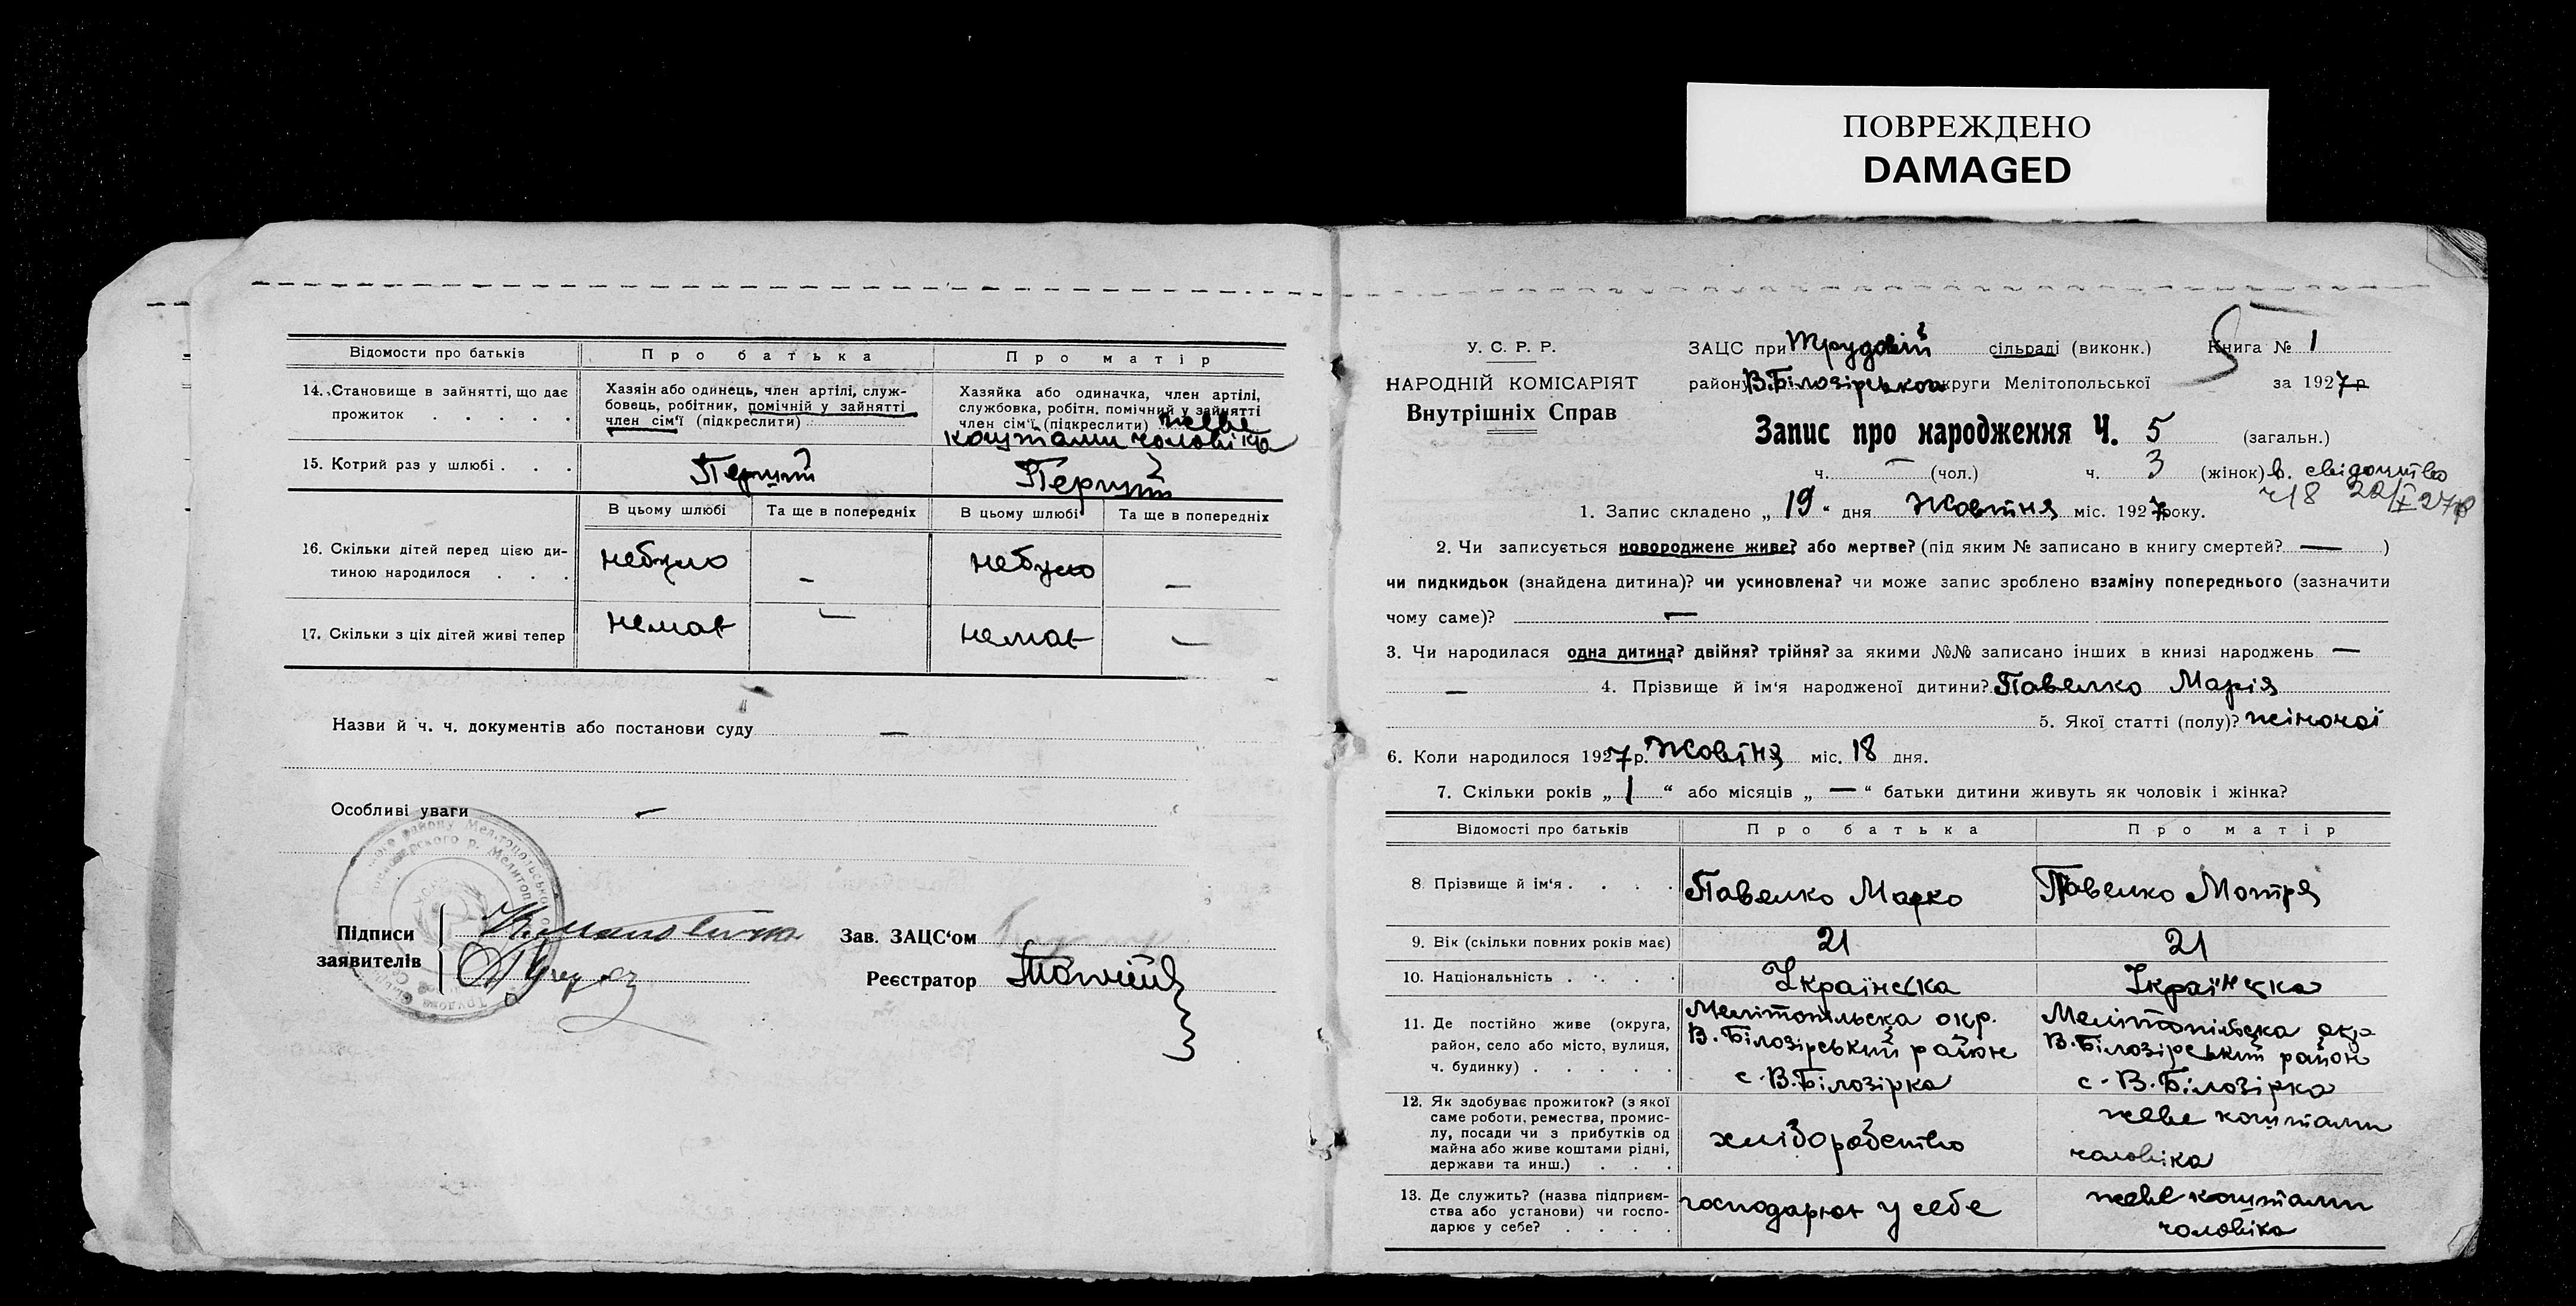 ПОВРЕЖДЕНО
DAMAGED
Відомости про батьків
Про батька
Про матір
14. Становище в зайнятті, що дає
прожиток
Хазяїн або одинець, член артілі, служ-
бовець, робітник, помічній у зайнятті
член сім'ї (підкреслити)
Хазяйка або одиначка, член артілі,
службовка, робітн. помічний у зайнятті
член сім'ї (підкреслити) живе
коштами чоловіка
15. Котрий раз у шлюбі
Перший
Перший
В цьому шлюбі
Та ще в попередніх
В цьому шлюбі
Та ще в попередніх
16. Скільки дітей перед цією ди-
тиною народилося
небуло
-
небуло
-
17. Скільки з ціх дітей живі тепер
немає
-
немає
-
Назви й ч. ч. документів або постанови суду —
Особливі уваги —
Підписи
заявителів
Зав. ЗАЦС'ом
Реєстратор
У. С. Р. Р.
НАРОДНІЙ КОМІСАРІЯТ
Внутрішніх Справ
ЗАЦС при Трудовій сільраді (виконк.)
Книга № 1
5
району В.Білозірської округи Мелітопольської
за 1927 р
Запис про народження Ч. 5 (загальн.)
ч. — (чол.) ч. 3 (жінок) в. свідоцтво
1. Запис складено „ 19 “ дня Жовтня міс. 1927 року.
2. Чи записується новороджене живе? або мертве? (під яким № записано в книгу смертей? — )
чи пидкидьок (знайдена дитина)? чи усиновлена? чи може запис зроблено взаміну попереднього (зазначити
чому саме)? —
3. Чи народилася одна дитина? двійня? трійня? за якими №№ записано інших в книзі народжень —
— 4. Прізвище й ім'я народженої дитини? Павелко Марія
5. Якої статті (полу)? жіночої
6. Коли народилося 1927 р. Жовтня міс. 18 дня.
7. Скільки років „ 1 “ або місяців „ — “ батьки дитини живуть як чоловік і жінка?
Відомості про батьків
Про батька
Про матір
8. Прізвище й ім'я
Павелко Марко
Павелко Мотря
9. Вік (скільки повних років має)
21
21
10. Національність
Українська
Українська
11. Де постійно живе (округа,
район, село або місто, вулиця,
ч. будинку)
Мелітопільська окр.
В.Білозірський район
с. В.Білозірка
Мелітопільска окр
В.Білозірський район
с. В.Білозірка
12. Як здобуває прожиток? (з якої
саме роботи, ремества, промис-
лу, посади чи з прибутків од
майна або живе коштами рідні,
держави та инш.)
хліборобство
живе коштами
чоловіка
13. Де служить? (назва підприєм-
ства або установи) чи госпо-
дарює у себе?
господарює у себе
живе коштами
чоловіка